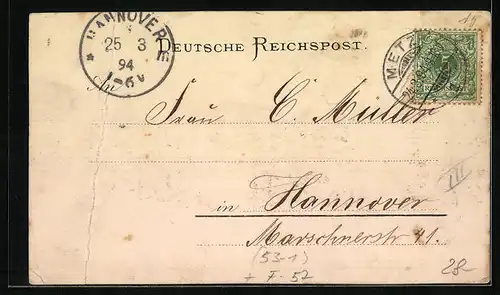 HANNOVER
25 3
94
DEUTSCHE REICHSPOST.
METZ
An
Frau C. Müller
in Hannover
Marschnerstr 41.
(53-1)
+ F-52
III
28-